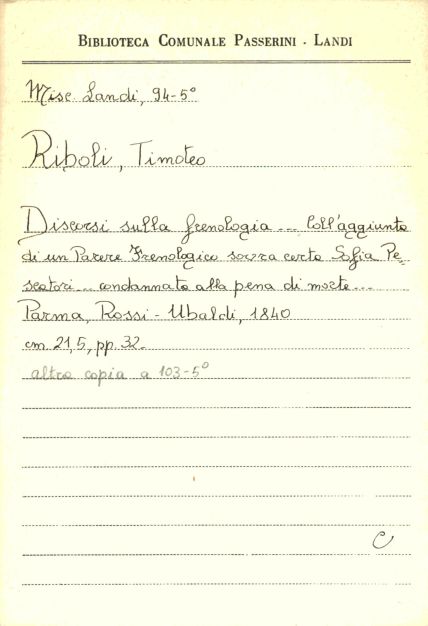 BIBLIOTECA COMUNALE PASSERINI - LANDI
Misc. Landi, 94-5°
Riboli, Timoteo
Discorsi sulla frenologia ... Coll'aggiunta
di un Parere Frenologico sovra certa Sofia Pe-
scatori ... condannata alla pena di morte ...
Parma, Rossi - Ubaldi, 1840
cm. 21,5, pp. 32.
altra copia a 103-5°
C